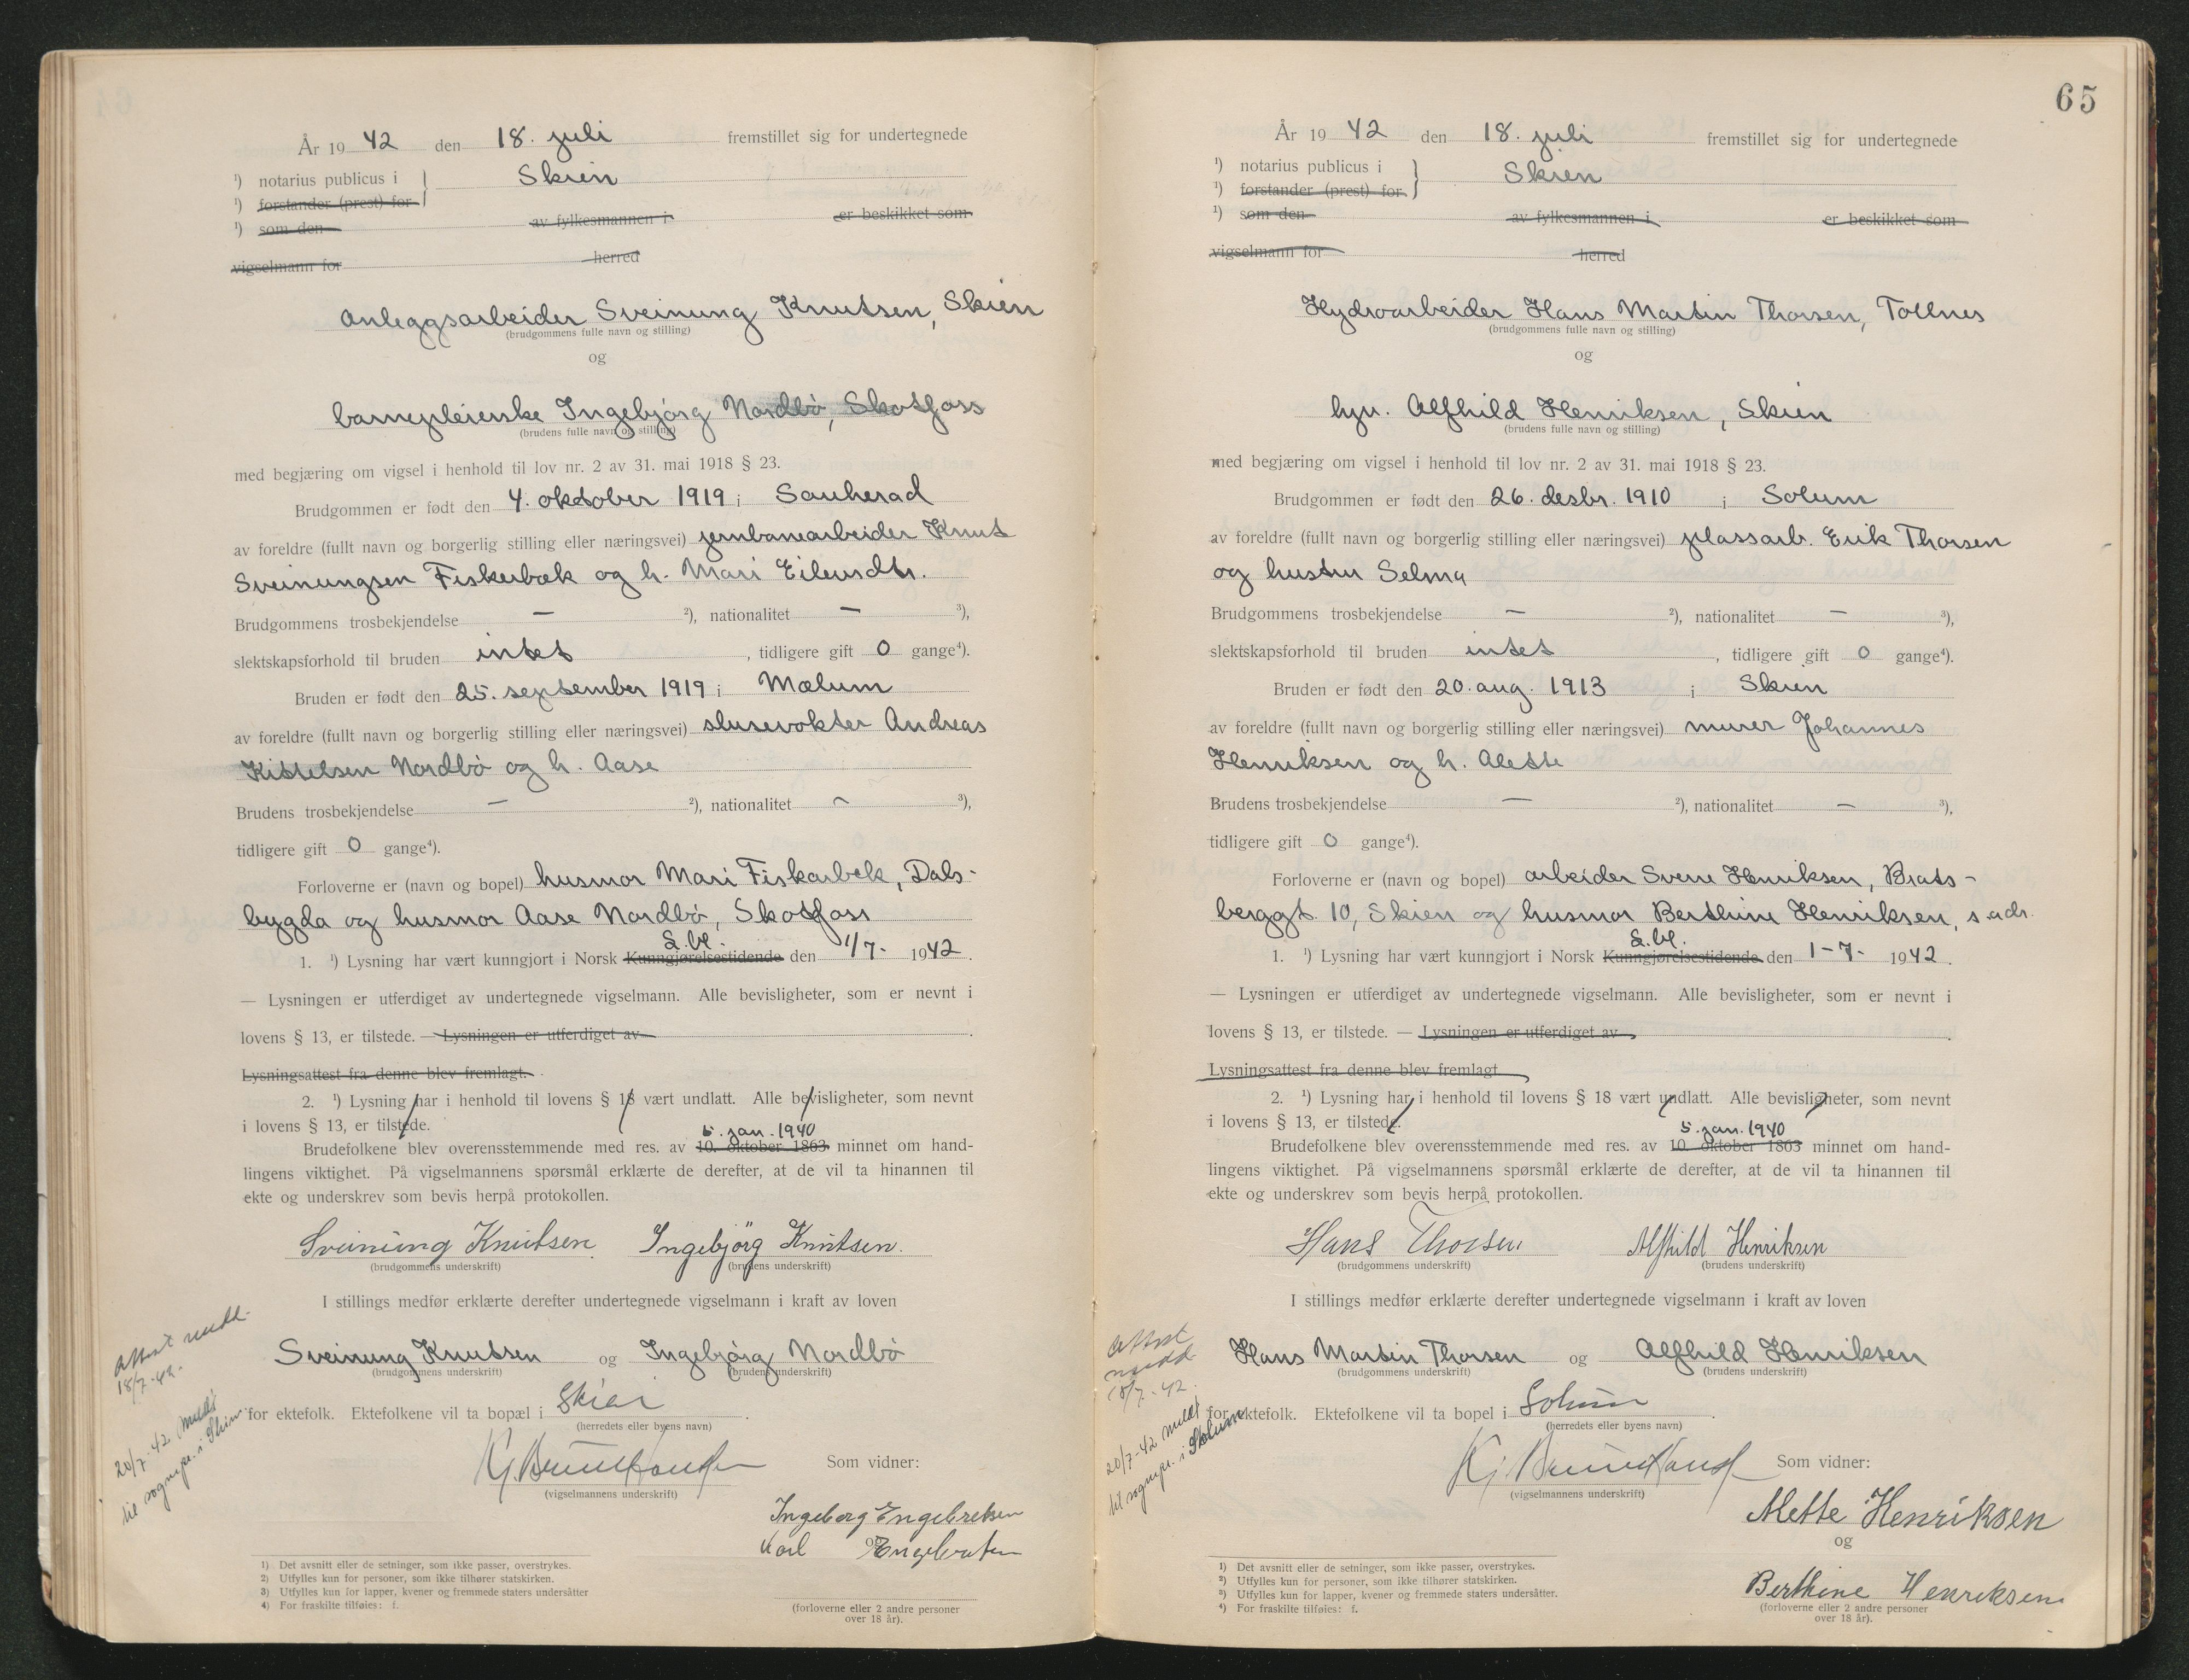 År 19 42 den 18. juli fremstillet sig for undertegnede
¹) notarius publicus i } Skien
¹) forstander (prest) for
¹) som den av fylkesmannen i er beskikket som
vigselmann for herred
anleggsarbeider Sveinung Knutsen, Skien
(brudgommens fulle navn og stilling)
og
barnepleierske Ingebjørg Nordbø, Skotfoss
(brudens fulle navn og stilling)
med begjæring om vigsel i henhold til lov nr. 2 av 31. mai 1918 § 23.
Brudgommen er født den 4. oktober 1919 i Sauherad
av foreldre (fullt navn og borgerlig stilling eller næringsvei) jernbanearbeider Knut
Sveinungsen Fiskerbæk og h. Mari Eilevsdtr.
Brudgommens trosbekjendelse — ²), nationalitet — ³),
slektskapsforhold til bruden intet, tidligere gift 0 gange⁴).
Bruden er født den 25. september 1919 i Mælum
av foreldre (fullt navn og borgerlig stilling eller næringsvei) slusevokter Andreas
Kittelsen Nordbø og h. Aase
Brudens trosbekjendelse — ²), nationalitet — ³),
tidligere gift 0 gange⁴).
Forloverne er (navn og bopel) husmor Mari Fiskarbek, Dals-
bygda og husmor Aase Nordbø, Skotfoss
L.bl.
1. ¹) Lysning har vært kunngjort i Norsk Kunngjørelsestidende den 1/7- 1942.
— Lysningen er utferdiget av undertegnede vigselmann. Alle bevisligheter, som er nevnt i
lovens § 13, er tilstede. — Lysningen er utferdiget av .
Lysningsattest fra denne blev fremlagt.
2. ¹) Lysning har i henhold til lovens § 18 vært undlatt. Alle bevisligheter, som nevnt
i lovens § 13, er tilstede.
5. jan. 1940
Brudefolkene blev overensstemmende med res. av 10. oktober 1863 minnet om hand-
lingens viktighet. På vigselmannens spørsmål erklærte de derefter, at de vil ta hinannen til
ekte og underskrev som bevis herpå protokollen.
Sveinung Knutsen. Ingebjörg Knutsen.
(brudgommens underskrift) (brudens underskrift)
I stillings medfør erklærte derefter undertegnede vigselmann i kraft av loven
Sveinung Knutsen og Ingebjørg Nordbø
(brudgommens underskrift) (brudens underskrift)
for ektefolk. Ektefolkene vil ta bopæl i Skien.
(herredets eller byens navn)
Som vidner:
(vigselmannens underskrift)
Ingeborg Engebretsen
og
Karl Engebretsen
(forloverne eller 2 andre personer
over 18 år).
Attest medd.
18/7-42.
20/7-42 meldt
til sognepr. i Skien
1) Det avsnitt eller de setninger, som ikke passer, overstrykes.
2) Utfylles kun for personer, som ikke tilhører statskirken.
3) Utfylles kun for lapper, kvener og fremmede staters undersåtter
4) For fraskilte tilføies: f.
65
År 19 42 den 18. juli fremstillet sig for undertegnede
¹) notarius publicus i } Skien
¹) forstander (prest) for
¹) som den av fylkesmannen i er beskikket som
vigselmann for herred
Hydroarbeider Hans Martin Thorsen, Tollnes
(brudgommens fulle navn og stilling)
og
hyn. Alfhild Henriksen, Skien
(brudens fulle navn og stilling)
med begjæring om vigsel i henhold til lov nr. 2 av 31. mai 1918 § 23.
Brudgommen er født den 26. desbr. 1910 i Solum
av foreldre (fullt navn og borgerlig stilling eller næringsvei) plassarb. Erik Thorsen
og hustru Selma
Brudgommens trosbekjendelse — ²), nationalitet — ³),
slektskapsforhold til bruden intet, tidligere gift 0 gange⁴).
Bruden er født den 20. aug. 1913 i Skien
av foreldre (fullt navn og borgerlig stilling eller næringsvei) murer Johannes
Henriksen og h. Alette
Brudens trosbekjendelse — ²), nationalitet — ³),
tidligere gift 0 gange⁴).
Forloverne er (navn og bopel) arbeider Sverre Henriksen, Brats-
berggt. 10, Skien og husmor Berthine Henriksen, s. adr.
L.bl.
1. ¹) Lysning har vært kunngjort i Norsk Kunngjørelsestidende den 1-7- 1942.
— Lysningen er utferdiget av undertegnede vigselmann. Alle bevisligheter, som er nevnt i
lovens § 13, er tilstede. — Lysningen er utferdiget av .
Lysningsattest fra denne blev fremlagt
2. ¹) Lysning har i henhold til lovens § 18 vært undlatt. Alle bevisligheter, som nevnt
i lovens § 13, er tilstede.
5. jan. 1940
Brudefolkene blev overensstemmende med res. av 10. oktober 1863 minnet om hand-
lingens viktighet. På vigselmannens spørsmål erklærte de derefter, at de vil ta hinannen til
ekte og underskrev som bevis herpå protokollen.
Hans Thorsen Alfhild Henriksen
(brudgommens underskrift) (brudens underskrift)
I stillings medfør erklærte derefter undertegnede vigselmann i kraft av loven
Hans Martin Thorsen og Alfhild Henriksen
(brudgommens underskrift) (brudens underskrift)
for ektefolk. Ektefolkene vil ta bopel i Solum.
(herredets eller byens navn)
Som vidner:
(vigselmannens underskrift)
Alette Henriksen
og
Berthine Henriksen.
(forloverne eller 2 andre personer
over 18 år).
Attest
medd.
18/7-42.
20/7-42 meldt
til sognepr. i Solum
¹) Det avsnitt eller de setninger, som ikke passer, overstrykes.
²) Utfylles kun for personer, som ikke tilhører statskirken.
³) Utfylles kun for lapper, kvener og fremmede staters undersåtter.
⁴) For fraskilte tilføies: f.